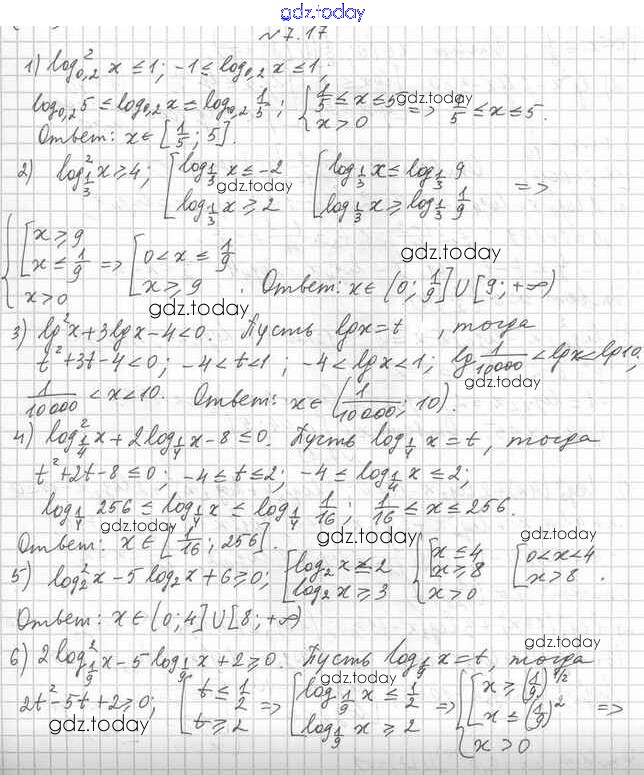 gdz.today
№7.17
1) log²₀,₂ x ≤ 1; -1 ≤ log₀,₂ x ≤ 1;
log₀,₂ 5 ≤ log₀,₂ x ≤ log₀,₂ 1/5; { 1/5 ≤ x ≤ 5 gdz.today => 1/5 ≤ x ≤ 5.
x > 0
Ответ: x ∈ [1/5; 5].
2) log²_{1/3} x ≥ 4; [ log_{1/3} x ≤ -2 [ log_{1/3} x ≤ log_{1/3} 9
gdz.today =>
log_{1/3} x ≥ 2 log_{1/3} x ≥ log_{1/3} 1/9
{ [ x ≥ 9
x ≤ 1/9 => [ 0 < x ≤ 1/9 gdz.today
x > 0 x ≥ 9. Ответ: x ∈ (0; 1/9] ∪ [9; +∞)
gdz.today
3) lg² x + 3 lg x - 4 < 0. Пусть lg x = t, тогда
t² + 3t - 4 < 0; -4 < t < 1; -4 < lg x < 1; lg 1/10000 < lg x < lg 10,
gdz.today
1/10000 < x < 10. Ответ: x ∈ (1/10000; 10).
4) log²_{1/4} x + 2 log_{1/4} x - 8 ≤ 0. Пусть log_{1/4} x = t, тогда
t² + 2t - 8 ≤ 0; -4 ≤ t ≤ 2; -4 ≤ log_{1/4} x ≤ 2;
log_{1/4} 256 ≤ log_{1/4} x ≤ log_{1/4} 1/16; 1/16 ≤ x ≤ 256.
gdz.today gdz.today gdz.today
Ответ: x ∈ [1/16; 256].
5) log²₂ x - 5 log₂ x + 6 ≥ 0; [ log₂ x ≤ 2 { [ x ≤ 4 [ 0 < x < 4
log₂ x ≥ 3 x ≥ 8 x > 8.
x > 0
Ответ: x ∈ (0; 4] ∪ [8; +∞)
gdz.today
6) 2 log²_{1/9} x - 5 log_{1/9} x + 2 ≥ 0. Пусть log_{1/9} x = t, тогда
gdz.today
2t² - 5t + 2 ≥ 0; [ t ≤ 1/2 => [ log_{1/9} x ≤ 1/2 => { [ x ≥ (1/9)^{1/2}
t ≥ 2 log_{1/9} x ≥ 2 x ≤ (1/9)² =>
gdz.today x > 0